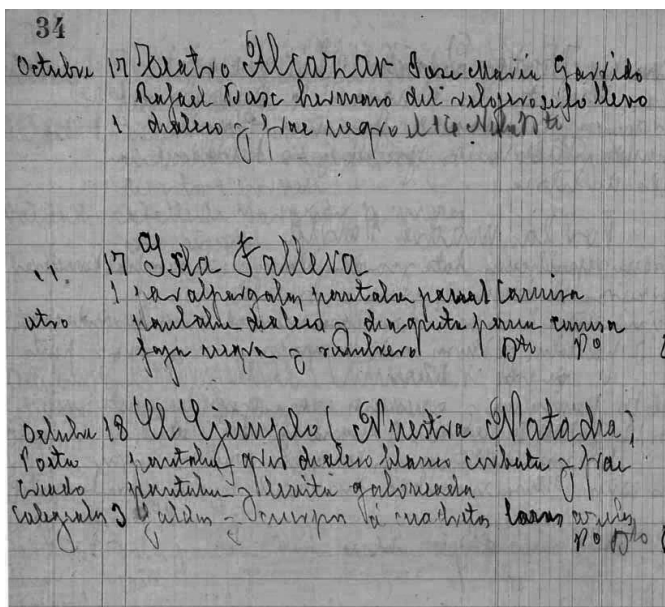 34
Octubre 17 Teatro Alcazar Jose Maria Garrido
Rafael hermano del relogero se lo llevo
1 chaleco y frac negro el 14
" 17 Isla Fallera
1 par alpargatas pantalon panal Camisa
otro pantalon chaleco y chaqueta pana camisa
faja negra y sombrero Dto Po
Octubre 18 El Ejemplo (Nuestra Natacha)
Poeta pantalon gris chaleco blanco corbata y frac
Criado pantalon y levita galoneada
Colegialas 3 faldas y cuerpos a cuadretos azules
Po Dto